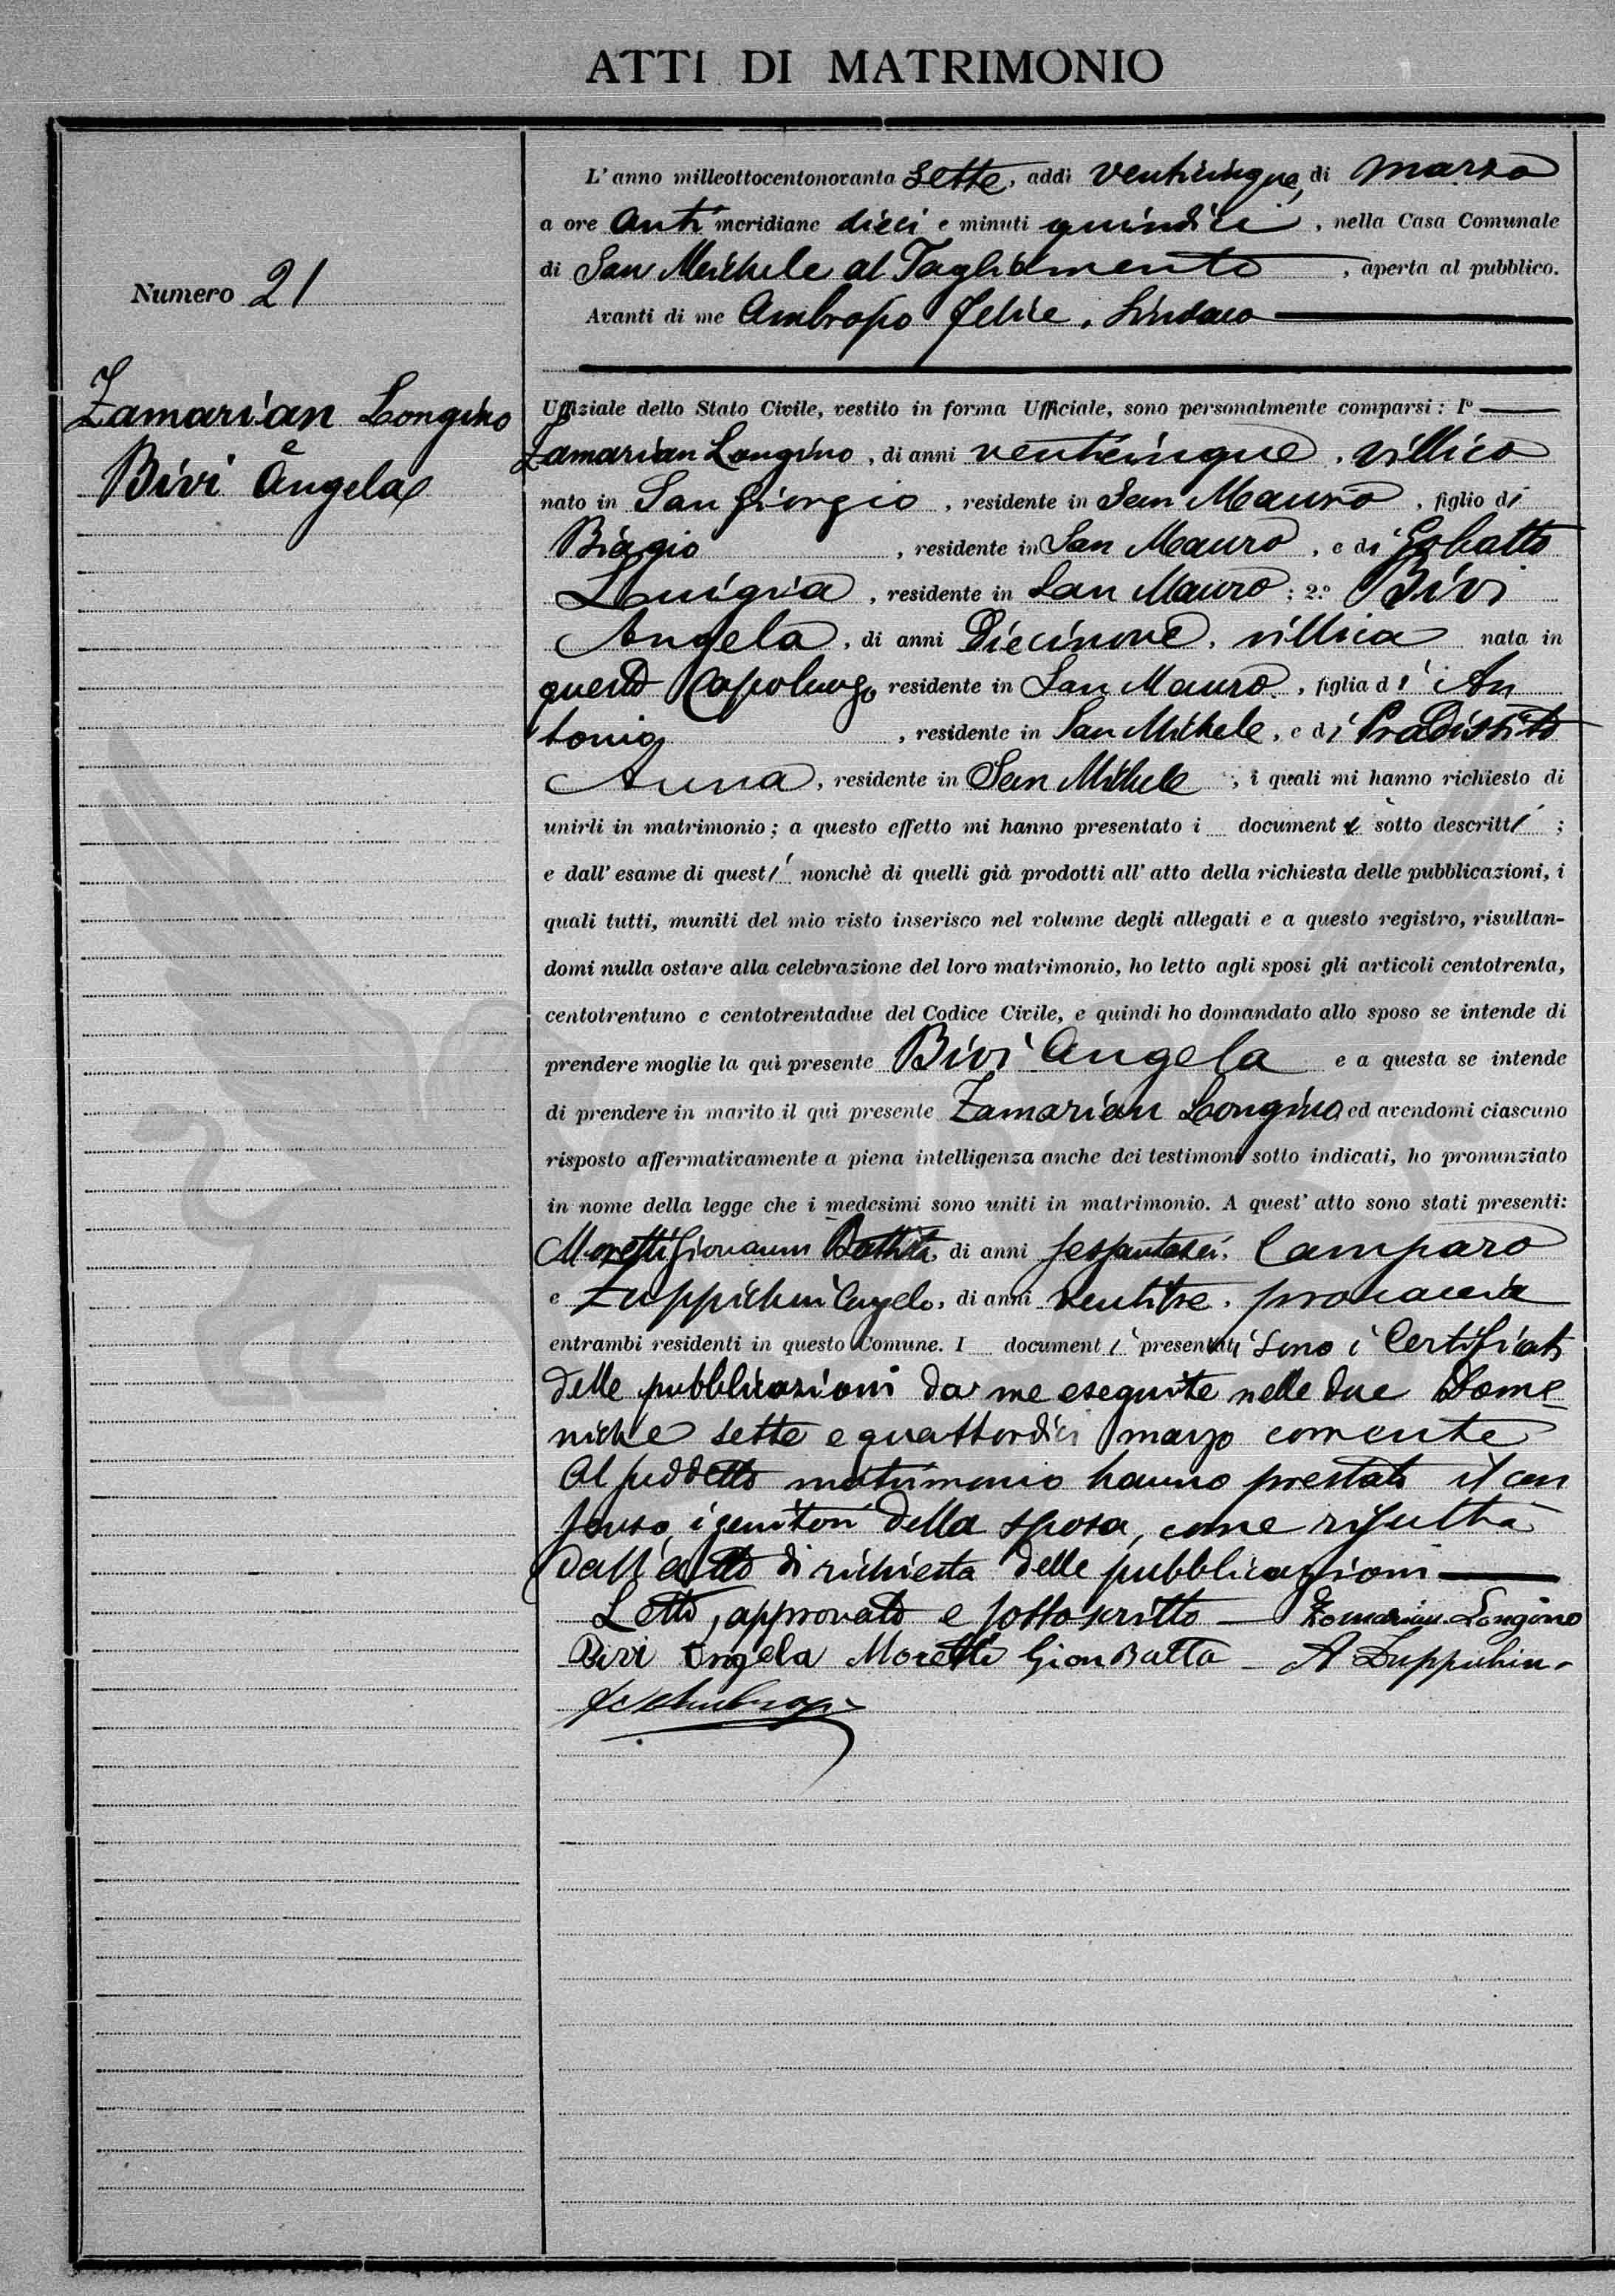 ATTI DI MATRIMONIO
Numero 21
Zamarian Longino
e
Bivi Angela
L'anno milleottocentonovanta sette, addì venticinque, di marzo
a ore anti meridiane dieci e minuti quindici, nella Casa Comunale
di San Michele al Tagliamento, aperta al pubblico.
Avanti di me Ambrosio Felice, Sindaco
Uffiziale dello Stato Civile, vestito in forma Ufficiale, sono personalmente comparsi: 1º
Zamarian Longino, di anni venticinque, villico
nato in San Giorgio, residente in San Mauro, figlio di
Biagio, residente in San Mauro, e di Gobatto
Luigia, residente in San Mauro; 2.º Bivi
Angela, di anni Diecinove, villica nata in
questo Capoluogo, residente in San Mauro, figlia di An
tonio, residente in San Michele, e di Pradissitto
Anna, residente in San Michele, i quali mi hanno richiesto di
unirli in matrimonio; a questo effetto mi hanno presentato i documenti sotto descritti;
e dall'esame di questi nonchè di quelli già prodotti all'atto della richiesta delle pubblicazioni, i
quali tutti, muniti del mio visto inserisco nel volume degli allegati e a questo registro, risultan-
domi nulla ostare alla celebrazione del loro matrimonio, ho letto agli sposi gli articoli centotrenta,
centotrentuno e centotrentadue del Codice Civile, e quindi ho domandato allo sposo se intende di
prendere moglie la quì presente Bivi Angela e a questa se intende
di prendere in marito il quì presente Zamarian Longino ed avendomi ciascuno
risposto affermativamente a piena intelligenza anche dei testimoni sotto indicati, ho pronunziato
in nome della legge che i medesimi sono uniti in matrimonio. A quest'atto sono stati presenti:
Moretti Giovanni Battista, di anni sessantasei, Camparo
e Zuppichin Angelo, di anni ventitre, procaccia
entrambi residenti in questo Comune. I documenti presentati sono i Certificati
delle pubblicazioni da me eseguite nelle due Dome
niche sette e quattordici marzo corrente
Al suddetto matrimonio hanno prestato il con
senso i genitori della sposa, come risulta
dall'atto di richiesta delle pubblicazioni
Letto, approvato e sottoscritto - Zamarian Longino
Bivi Angela Moretti Gion Batta - A Zuppichin